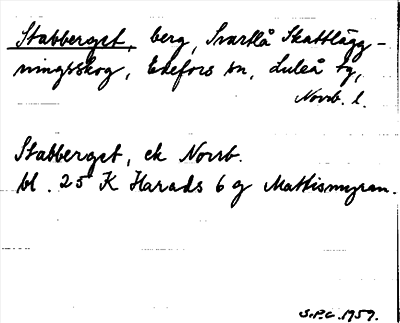 Stabberget, berg, Svartlå Skattlägg-
ningsskog, Edefors sn, Luleå tg,
Norrb. l.
Stabberget, ek Norrb.
bl. 25 K Harads 6 g Mattismyran.
S.P.C. 1959.